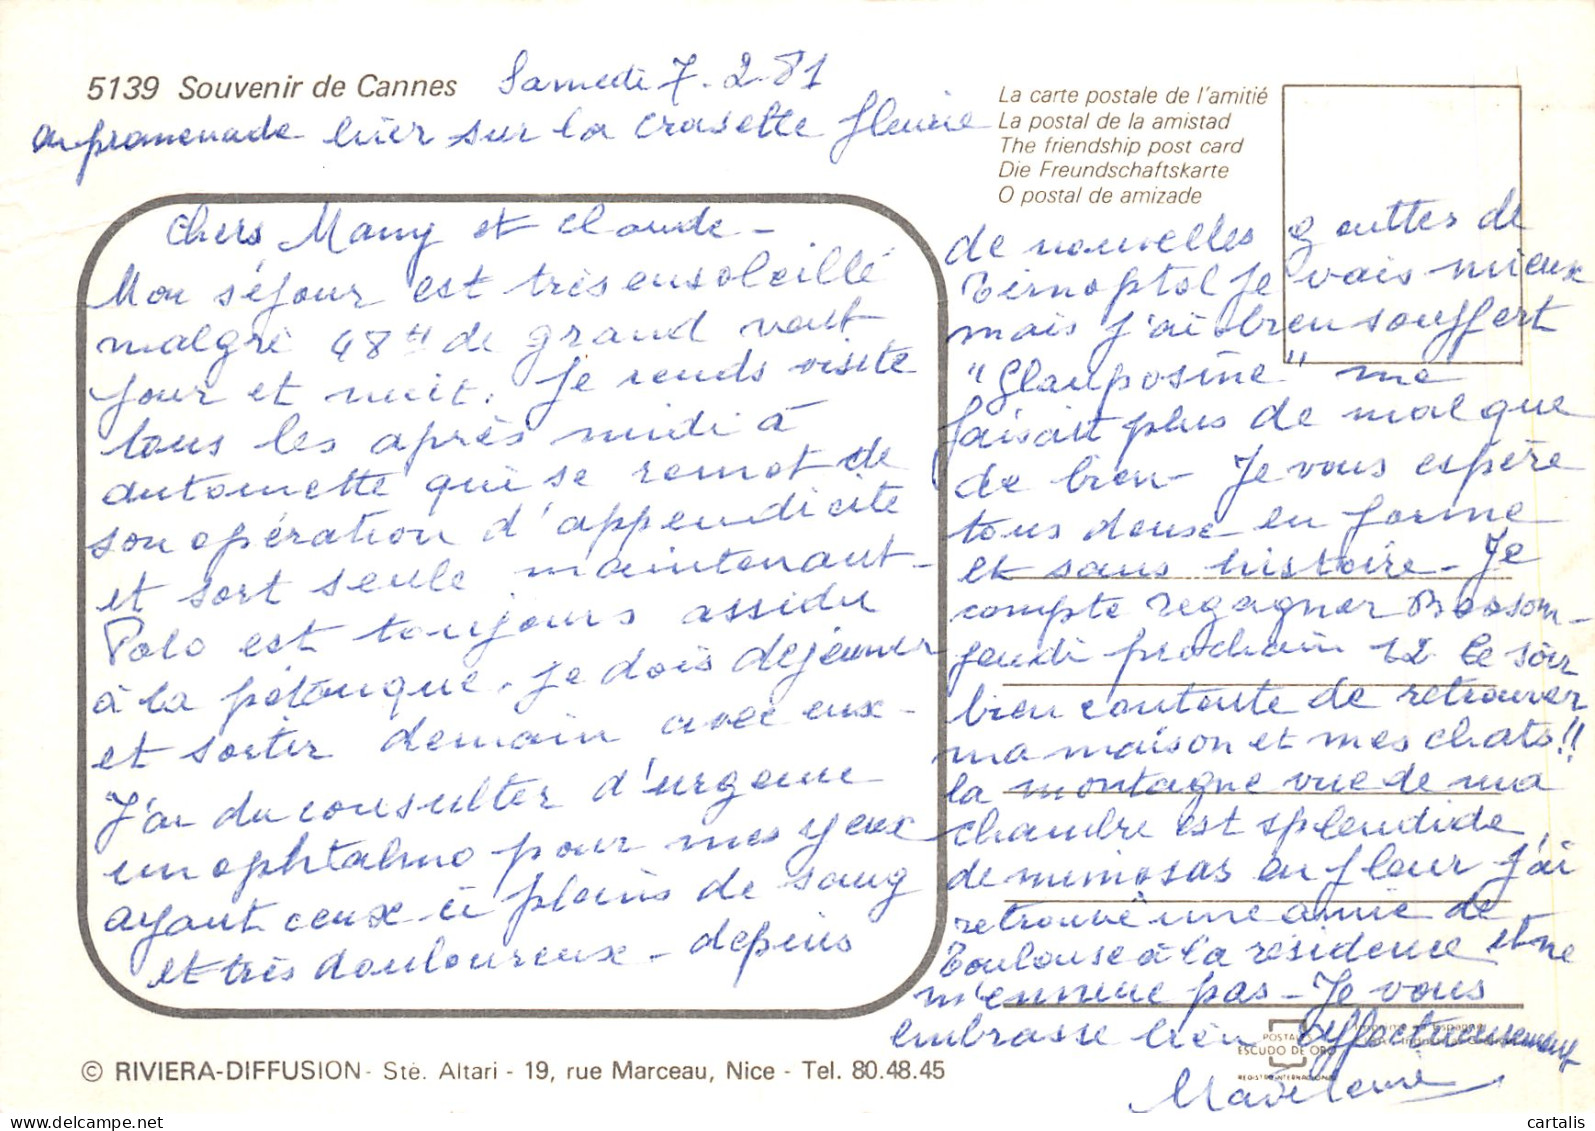 5139 Souvenir de Cannes
Samedi 7.2.81
en promenade hier sur la crosette fleurie
La carte postale de l'amitié
La postal de la amistad
The friendship post card
Die Freundschaftskarte
O postal de amizade
Chers Mamy et Claude -
Mon séjour est très ensoleillé
malgré 48 H de grand vent
jour et nuit. Je rends visite
tous les après midi à
Antoinette qui se remet de
son opération d'appendicite
et sort seule maintenant -
Polo est toujours assidu
à la pétanque. Je dois déjeuner
et sortir demain avec eux -
J'ai du consulter d'urgence
un ophtalmo pour mes yeux
ayant ceux ci pleins de sang
et très douloureux - depuis
de nouvelles gouttes de
Timoptol je vais mieux
mais j'ai bien souffert
"Glauposine" me
faisait plus de mal que
de bien - Je vous espère
tous deux en forme
et sans histoire - Je
compte regagner
jeudi prochain 12 le soir
bien contente de retrouver
ma maison et mes chats !!
la montagne vue de ma
chambre est splendide,
de mimosas en fleur j'ai
retrouvé une amie de
Toulouse à la résidence et ne
m'ennuie pas - Je vous
embrasse bien affectueusement
Madeleine
POSTAL
ESCUDO DE ORO
REGISTRO INTERNACIONAL
© RIVIERA-DIFFUSION - Sté. Altari - 19, rue Marceau, Nice - Tel. 80.48.45
cartalis